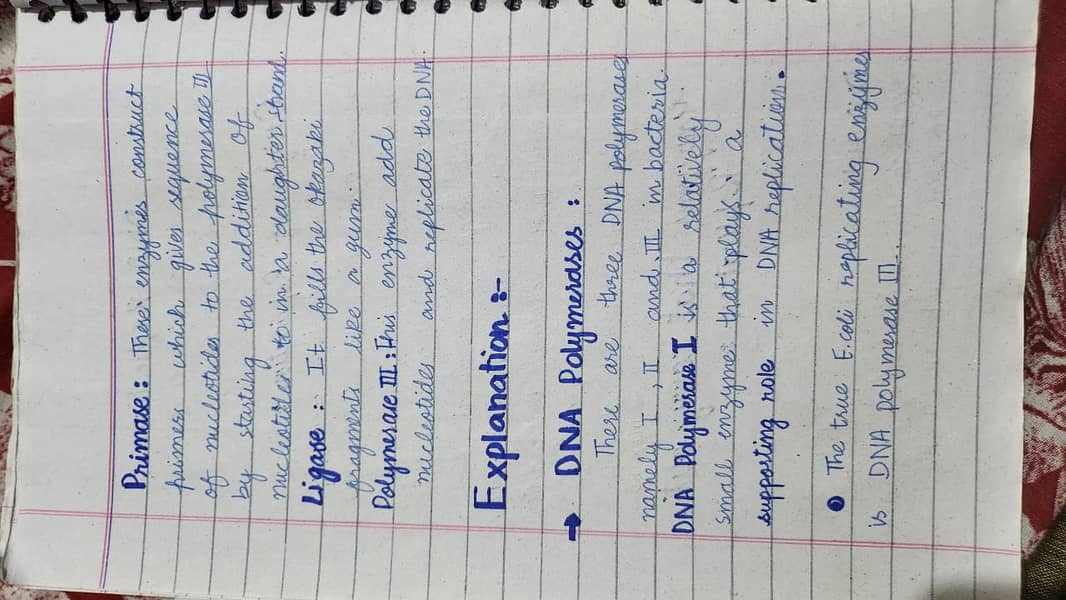 Primase : These enzymes construct
primers which gives sequence
of nucleotides to the polymerase III
by starting the addition of
nucleotides to in a daughter stand.
Ligase : It fills the okazaki
fragments like a gum
Polymerase III : This enzyme add
nucleotides and replicate the DNA.
Explanation :-
→ DNA Polymerases :
These are three DNA polymerases
namely I, II and III in bacteria.
DNA Polymerase I is a relatively
small enzyme that plays a
supporting role in DNA replication.
The true E.coli replicating enzymes
is DNA polymerase III.